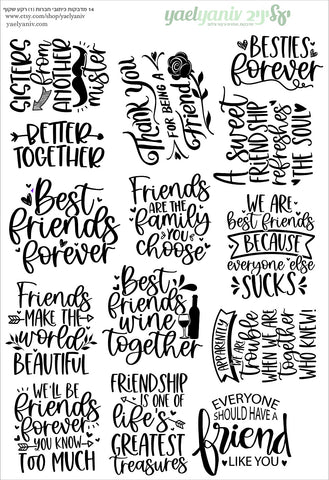 14 מדבקות כיתובי חברות (1) רקע שקוף
www.etsy.com/shop/yaelyaniv
yaelyaniv.com
yaelyaniv יעל יניב
SISTERS
from
ANOTHER
mister
Thank You
FOR BEING A
Friend
BESTIES
forever
BETTER
TOGETHER
A Sweet
FRIENDSHIP
refreshes
THE SOUL
Best
friends
forever
Friends
ARE THE
family
YOU
choose
WE ARE
best friends
BECAUSE
everyone else
SUCKS
Friends
MAKE THE
world
BEAUTIFUL
Best
friends
wine
together
APPARENTLY
WE ARE
trouble
WHEN WE ARE
together
WHO KNEW!
WE'LL BE
friends
forever
YOU KNOW
TOO MUCH
FRIENDSHIP
IS ONE OF
life's
GREATEST
treasures
EVERYONE
SHOULD HAVE A
friend
LIKE YOU